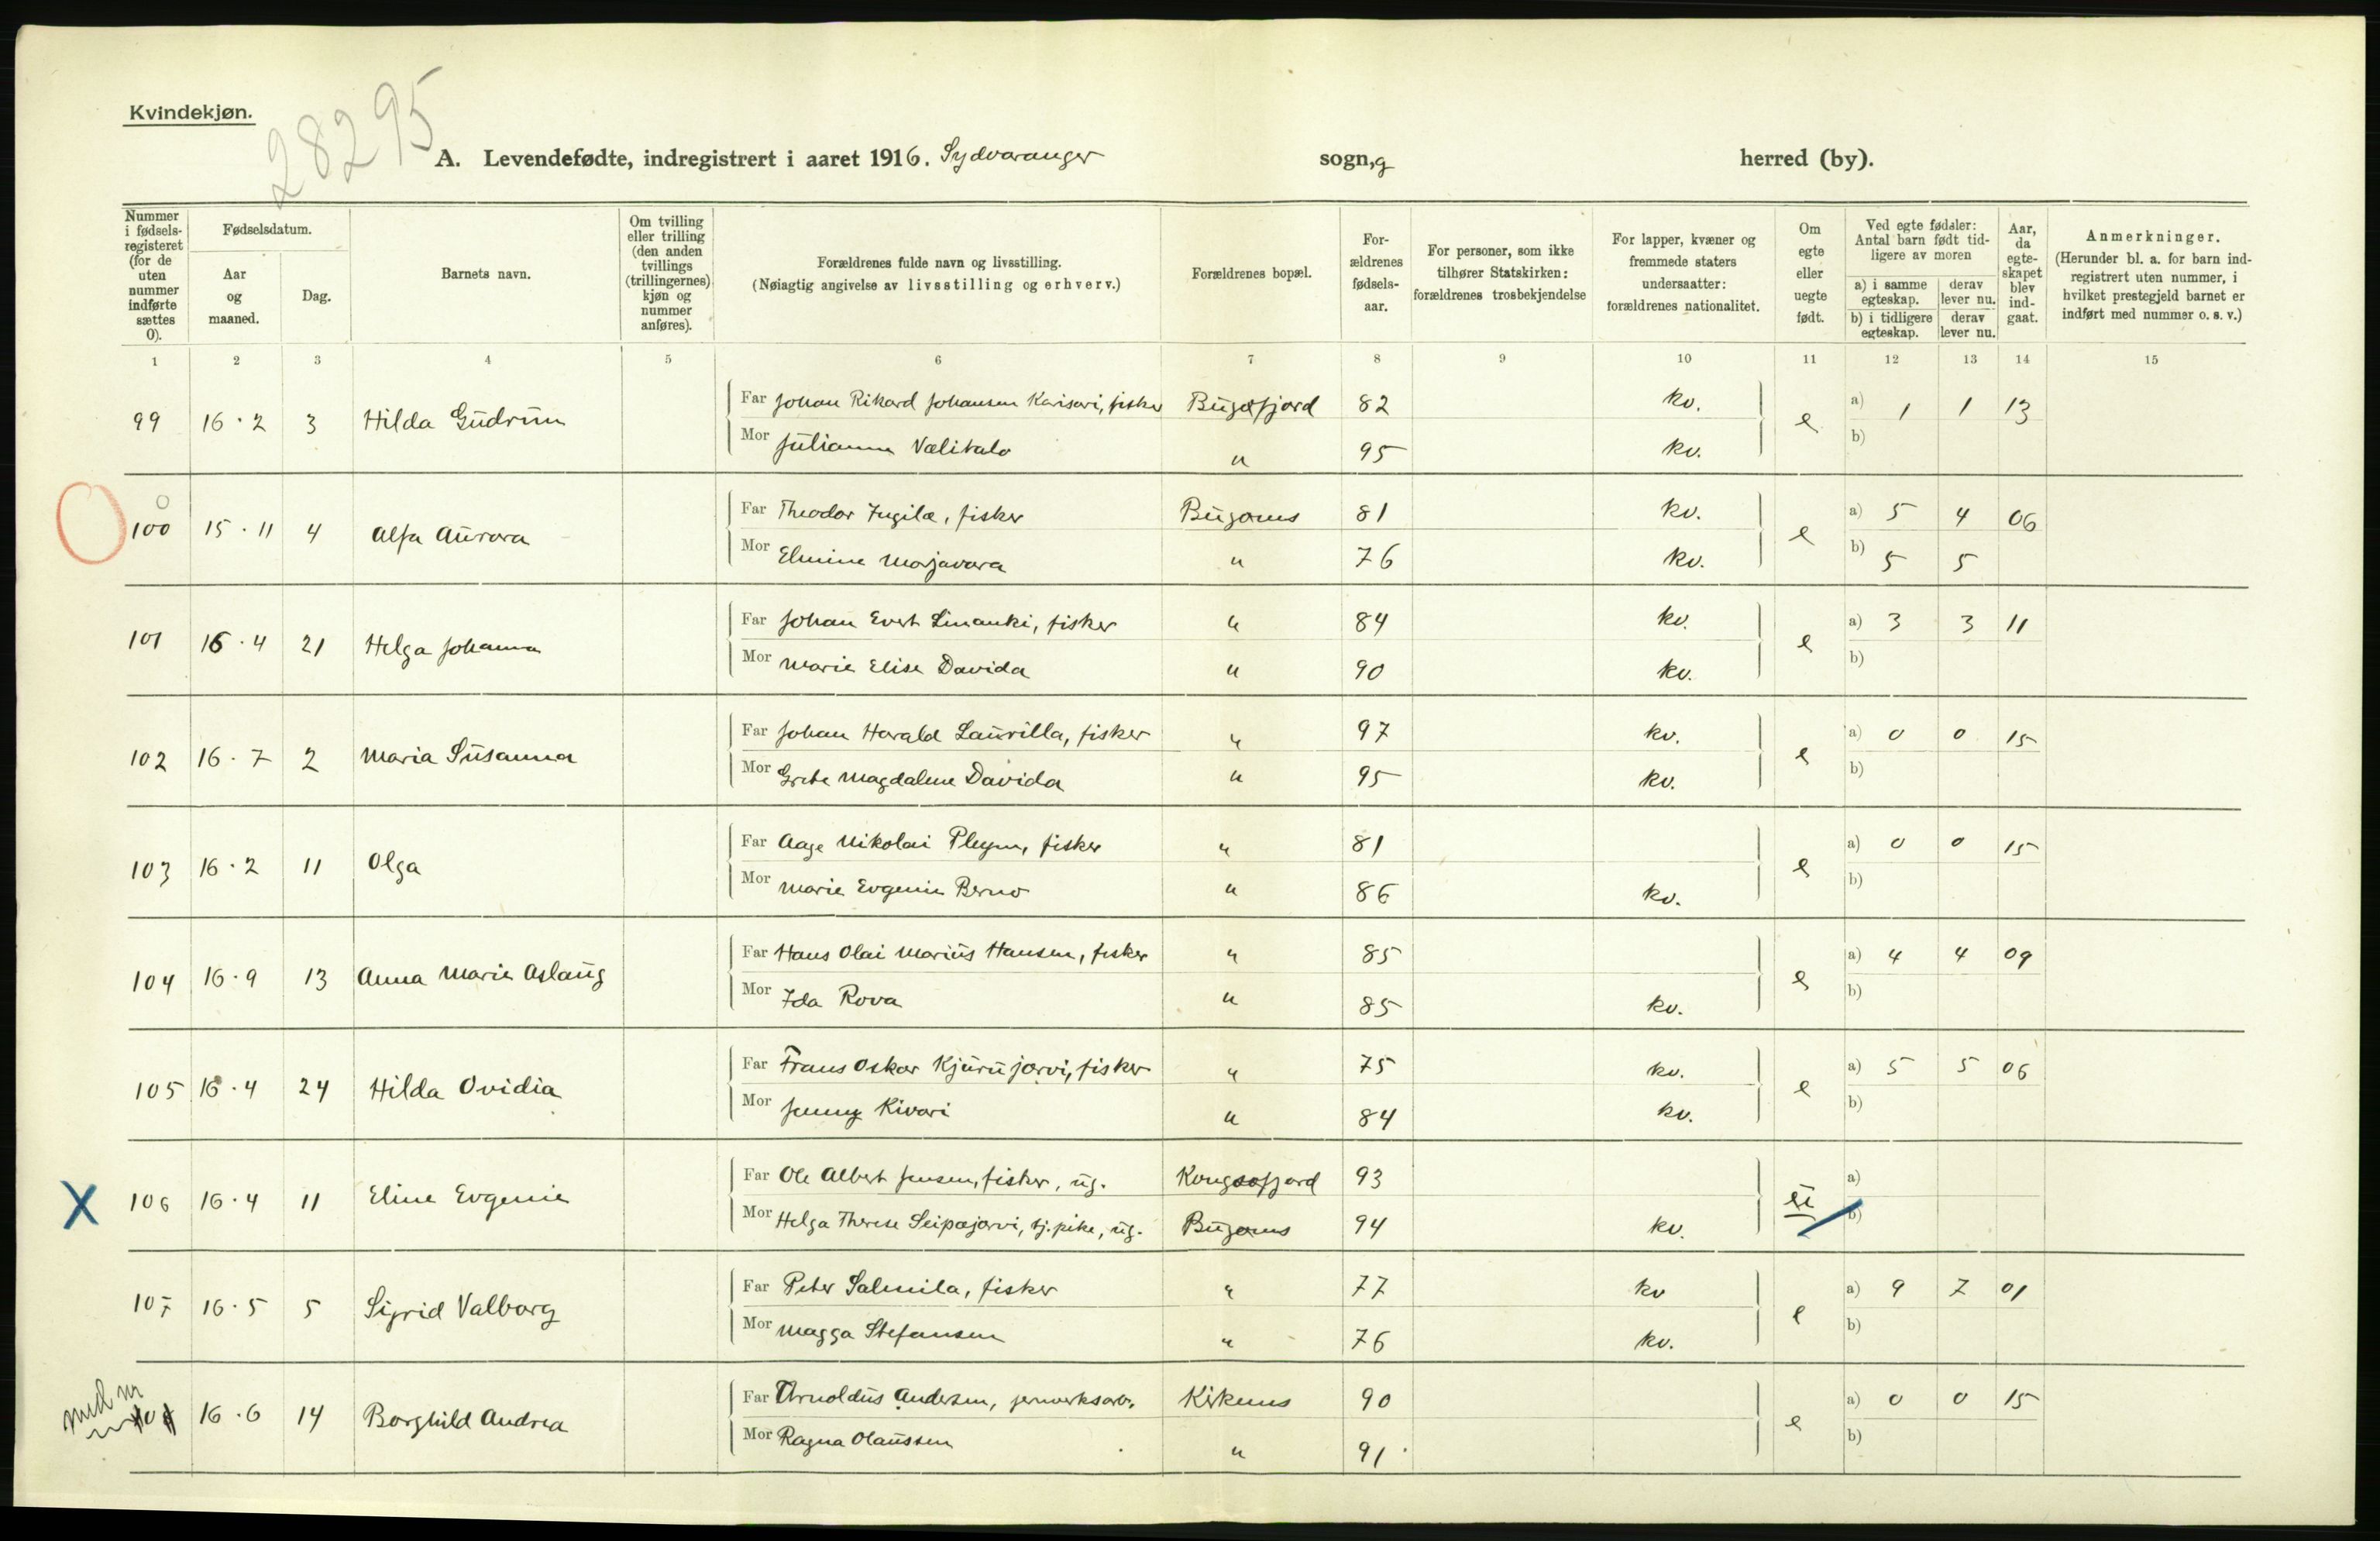 Kvindekjøn.
28295
A. Levendefødte, indregistrert i aaret 1916. Sydvaranger sogn, g herred (by).
Nummer i fødsels-registeret (for de uten nummer indførte sættes 0).
Fødselsdatum.
Aar og maaned.
Dag.
Barnets navn.
Om tvilling eller trilling (den anden tvillings (trillingernes) kjøn og nummer anføres).
Forældrenes fulde navn og livsstilling.
(Nøiagtig angivelse av livsstilling og erhverv.)
Forældrenes bopæl.
For-ældrenes fødsels-aar.
For personer, som ikke tilhører Statskirken: forældrenes trosbekjendelse
For lapper, kvæner og fremmede staters undersaatter: forældrenes nationalitet.
Om egte eller uegte født.
Ved egte fødsler: Antal barn født tid-ligere av moren
a) i samme egteskap.
derav lever nu.
b) i tidligere egteskap.
derav lever nu.
Aar, da egte-skapet blev ind-gaat.
Anmerkninger.
(Herunder bl. a. for barn ind-registrert uten nummer, i hvilket prestegjeld barnet er indført med nummer o. s. v.)
1 2 3 4 5 6 7 8 9 10 11 12 13 14 15
99 16·2 3 Hilda Gudrun
Far Johan Rikard Johansen Karisari, fisker Bugøfjord 82 kv. e a) 1 1 13
Mor Julianne Vælitalo " 95 kv. b)
0
100 15·11 4 Alfa Aurora
Far Theodor Jugila, fisker Bugønes 81 kv. e a) 5 4 06
Mor Elmine Marjavara " 76 kv. b) 5 5
101 16·4 21 Helga Johanna
Far Johan Evert Linanki, fisker " 84 kv. e a) 3 3 11
Mor Marie Elise Davida " 90 kv. b)
102 16·7 2 Maria Susanna
Far Johan Harald Laurilla, fisker " 97 kv. e a) 0 0 15
Mor Grete Magdalene Davida " 95 kv. b)
103 16·2 11 Olga
Far Aage Nikolai Pleym, fisker " 81 e a) 0 0 15
Mor Marie Evgenie Berno " 86 kv. b)
104 16·9 13 Anna Marie Aslaug
Far Hans Olai Marius Hansen, fisker " 85 e a) 4 4 09
Mor Ida Rova " 85 kv. b)
105 16·4 24 Hilda Ovidia
Far Frans Oskar Kjurujarvi, fisker " 75 kv. e a) 5 5 06
Mor Jenny Kivari " 84 kv. b)
X 106 16·4 11 Eline Evgenie
Far Ole Albert Jensen, fisker, ug. Kongsfjord 93 a)
Mor Helga Therese Seipajarvi, tj.pike, ug. Bugønes 94 kv. b)
107 16·5 5 Sigrid Valborg
Far Peter Salmila, fisker " 77 kv e a) 9 7 01
Mor Magga Stefansen " 76 kv. b)
16·6 14 Borghild Andrea
Far Arnoldus Andersen, jernverksarb. Kirkenes 90 e a) 0 0 15
Mor Ragna Olaussen " 91 b)